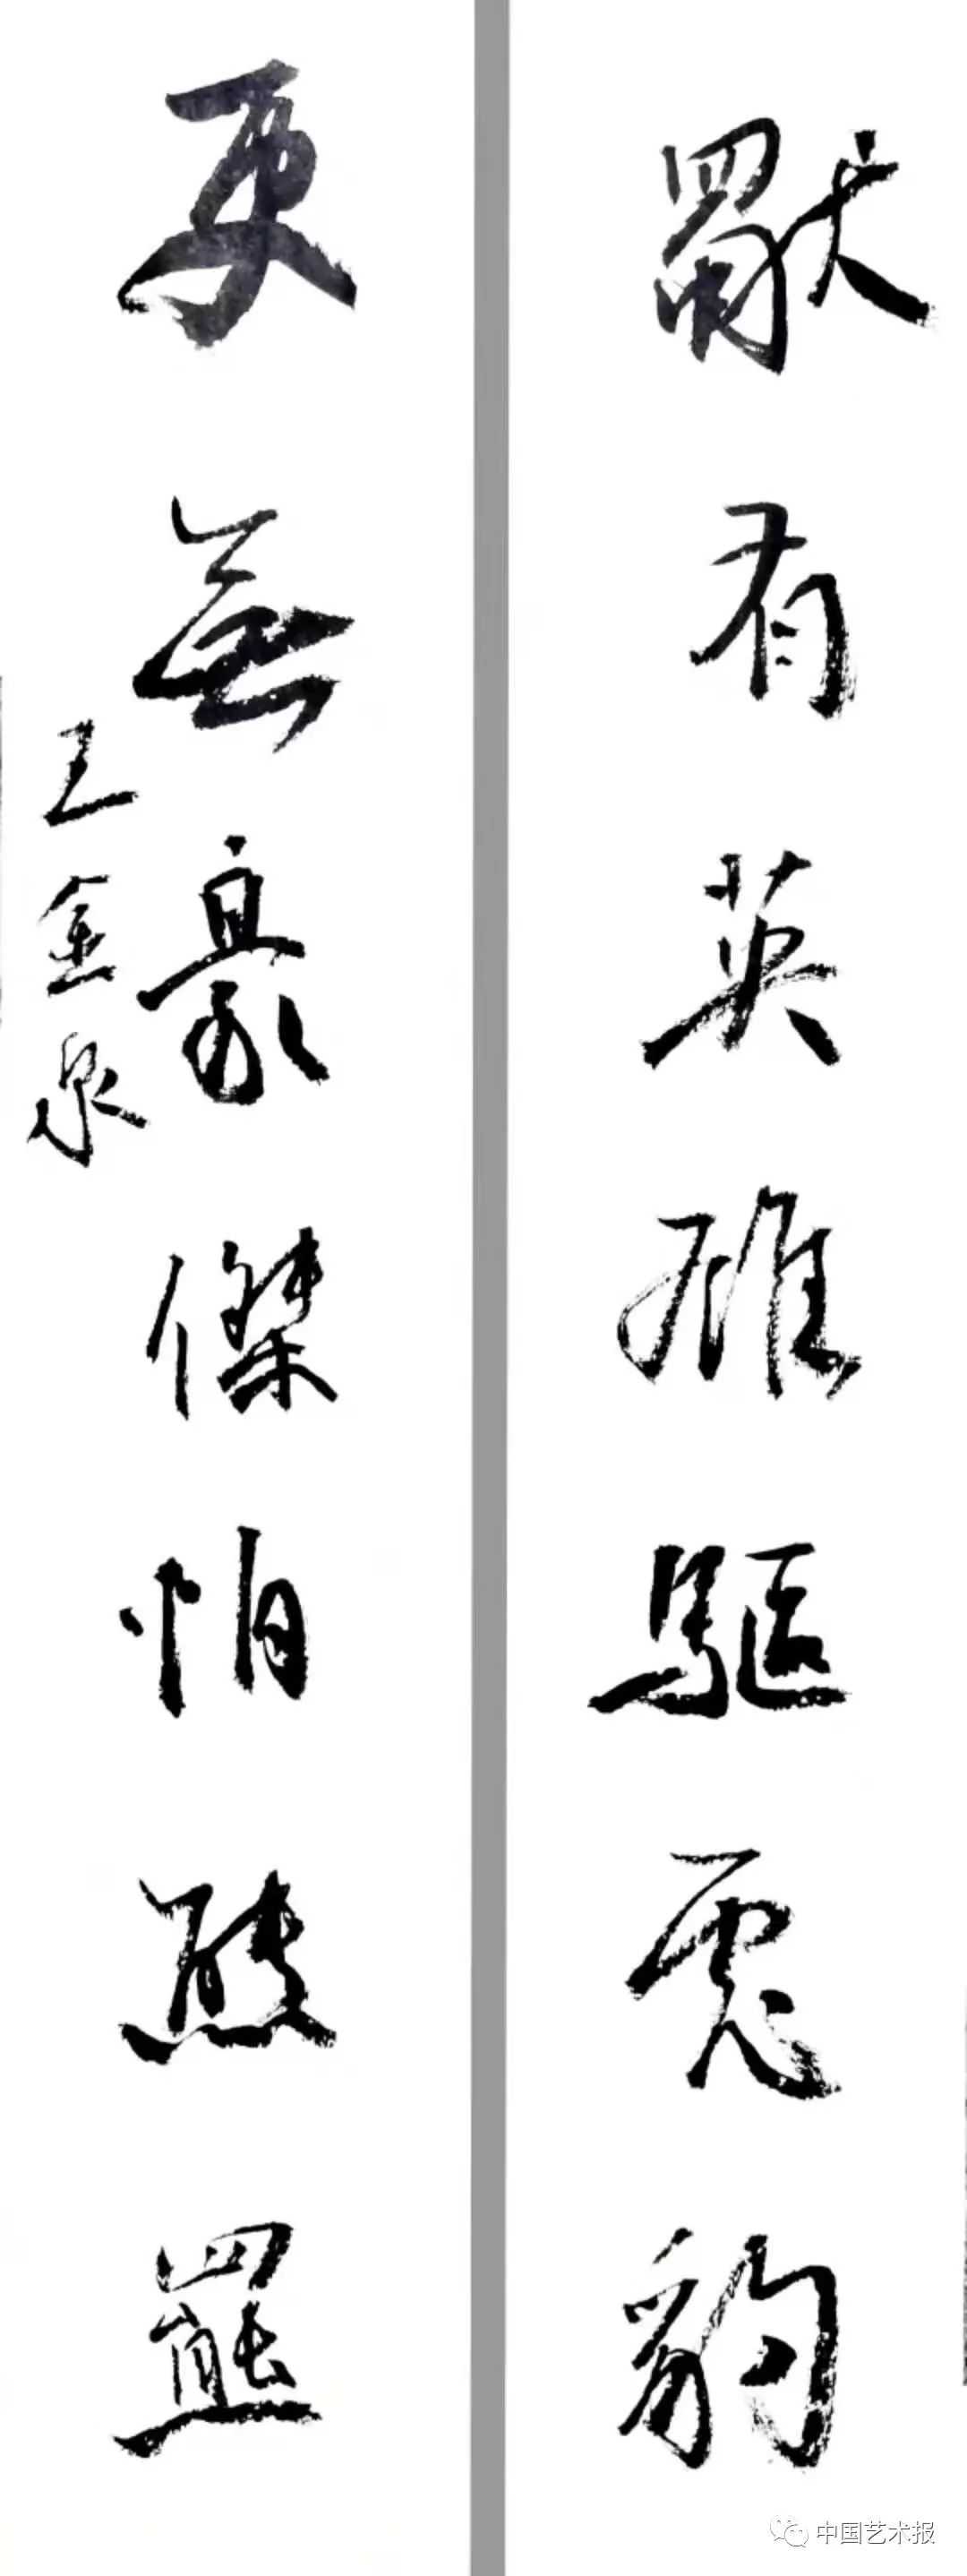 獨有英雄驅虎豹
更無豪傑怕熊羆
王金泉
中国艺术报